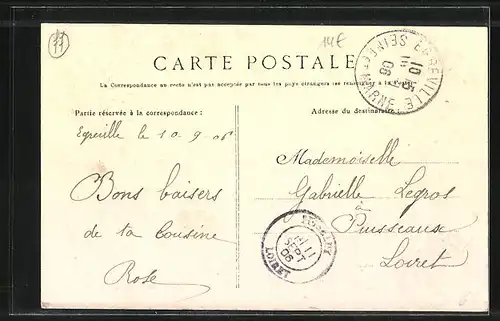 14€
CARTE POSTALE
La Correspondance au recto n'est pas acceptée par tous les pays étrangers (se renseigner à la Poste)
Partie réservée à la correspondance :
Adresse du destinataire :
Egreville le 10 9 06
Bons baisers
de ta Cousine
Rose
Mademoiselle
Gabrielle Legros
à
Puiseaux
Loiret
EGREVILLE
10 SEPT
06
SEINE ET MARNE
PUISEAUX
11
SEPT
06
LOIRET